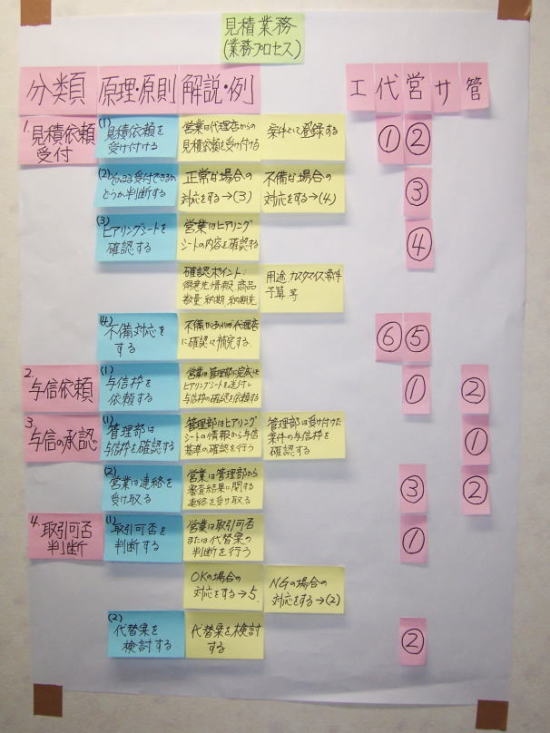 見積業務
(業務プロセス)
分類 原理・原則 解説・例 エ 代 営 サ 管
1. 見積依頼
受付
(1) 見積依頼を
受け付ける
営業は代理店からの
見積依頼を受け付ける
案件として登録する
① ②
(2)
どうか判断する
正常な場合の
対応をする→(3)
不備な場合の
対応をする→(4)
③
(3) ヒアリングシートを
確認する
営業はヒアリング
シートの内容を確認する
④
確認ポイント:
得意先情報、商品
数量、納期、納期先
用途 カスタマイズ条件
予算 等
(4) 不備対応を
する
不備があれば代理店
に確認し補完する
⑥ ⑤
2. 与信依頼
(1) 与信枠を
依頼する
営業は管理部に
ヒアリングシートを送付し
与信枠の確認を依頼する
① ②
3. 与信の承認
(1) 管理部は
与信枠を確認する
管理部はヒアリング
シートの情報から与信
基準の確認を行う
管理部は受け付けた
案件の与信枠を
確認する
①
(2) 営業は連絡を
受け取る
営業は管理部から
審査結果に関する
連絡を受け取る
③ ②
4. 取引可否
判断
(1) 取引可否を
判断する
営業は取引可否
または代替案の
判断を行う
①
OKの場合の
対応をする→5.
NGの場合の
対応をする→(2)
(2) 代替案を
検討する
代替案を検討
する
②